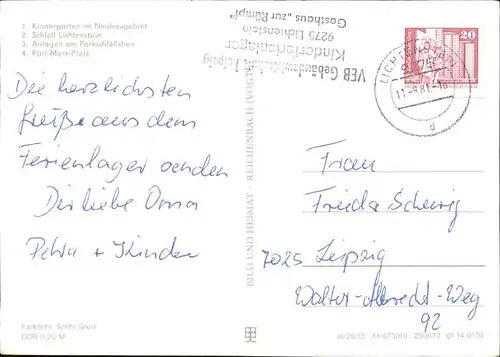 1. Kindergarten im Neubaugebiet
2. Schloß Lichtenstein
3. Anlagen am Parkschlößchen
4. Karl-Marx-Platz
Die herzlichsten
Grüße aus dem
Ferienlager senden
Dir liebe Oma
Petra + Kinder
Farbfoto:
DDR 0,20 M
BILD UND HEIMAT · REICHENBACH (VOGTL)
VEB Gebäudewirtschaft Leipzig
Kinderferienlager
9275 Lichtenstein
Gasthaus „zur Rümpf"
20
LICHTENSTEIN
9275
11.-8.81.-16
d
Frau
Frieda Scherig
7025 Leipzig
Walter-Albrecht-Weg
92
01 14 0170